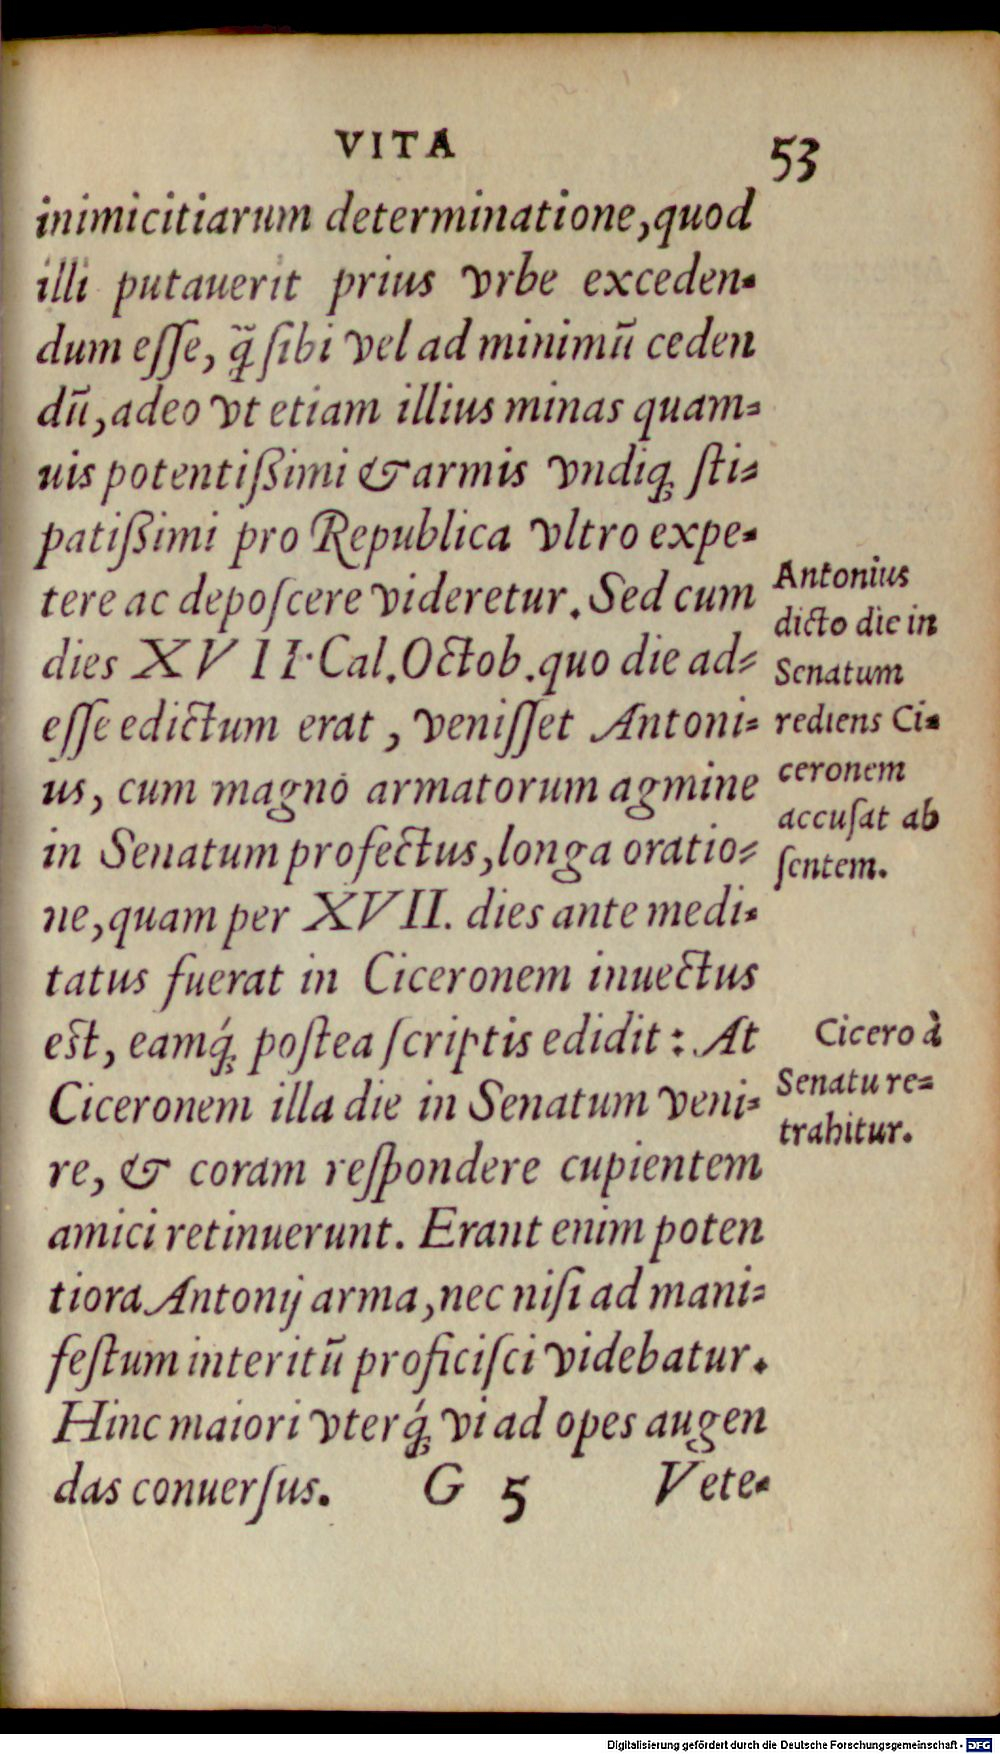 VITA 53
inimicitiarum determinatione, quod
illi putauerit prius vrbe exceden-
dum eſſe, q̃ ſibi vel ad minimũ ceden
dũ, adeo vt etiam illius minas quam-
uis potentißimi & armis vndiq; ſti-
patißimi pro Republica vltro expe-
tere ac depoſcere videretur. Sed cum
dies XVII. Cal. Octob. quo die ad-
eſſe edictum erat, veniſſet Antoni-
us, cum magno armatorum agmine
in Senatum profectus, longa oratio-
ne, quam per XVII. dies ante medi-
tatus fuerat in Ciceronem inuectus
est, eamq́; poſtea ſcriptis edidit: At
Ciceronem illa die in Senatum veni-
re, & coram reſpondere cupientem
amici retinuerunt. Erant enim poten
tiora Antonij arma, nec niſi ad mani-
feſtum interitũ proficiſci videbatur.
Hinc maiori vterq́; vi ad opes augen
das conuerſus. G 5 Vete-
Antonius
dicto die in
Senatum
rediens Ci-
ceronem
accuſat ab
ſentem.
Cicero à
Senatu re-
trahitur.
Digitalisierung gefördert durch die Deutsche Forschungsgemeinschaft - DFG